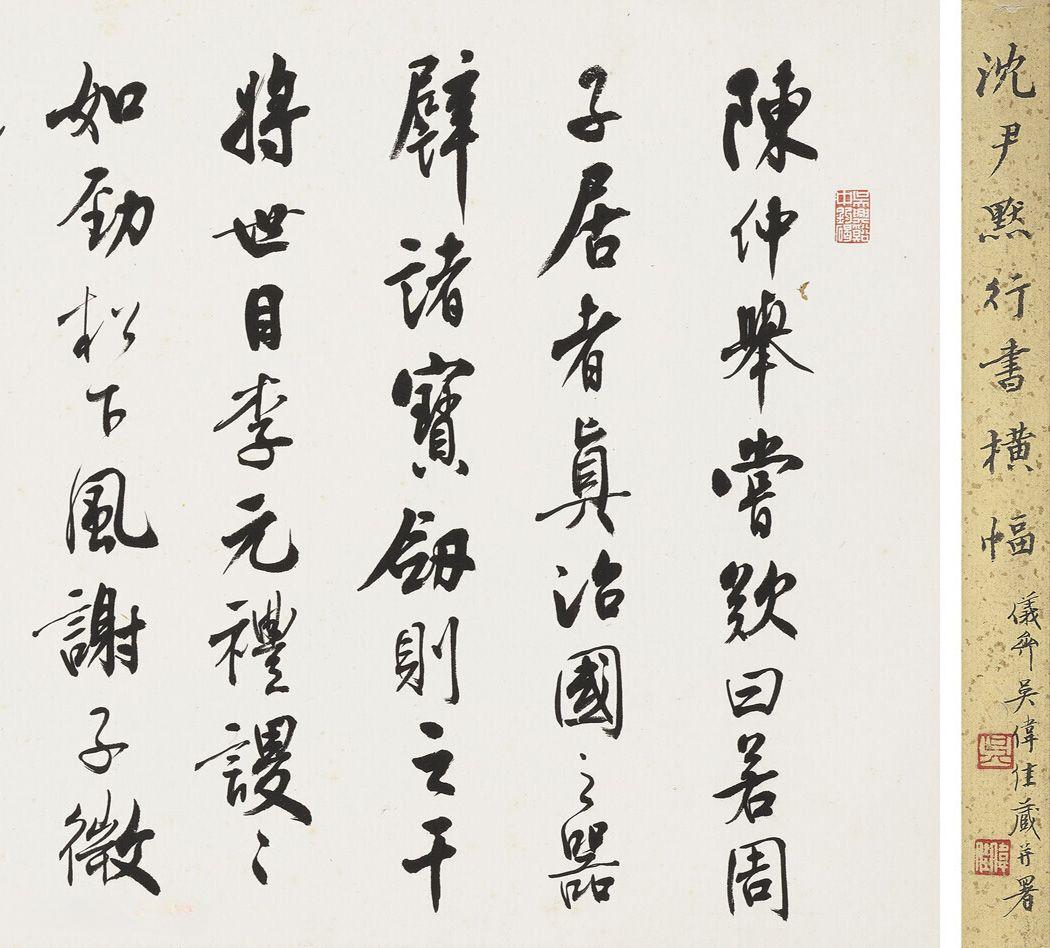 沈尹默行書橫幅
吳偉佳藏并署
吳
偉佳
陳仲舉嘗歎曰若周
子居者眞治國之器
辟諸寶劒則之干
將世目李元禮謖〻
如勁松下風謝子微